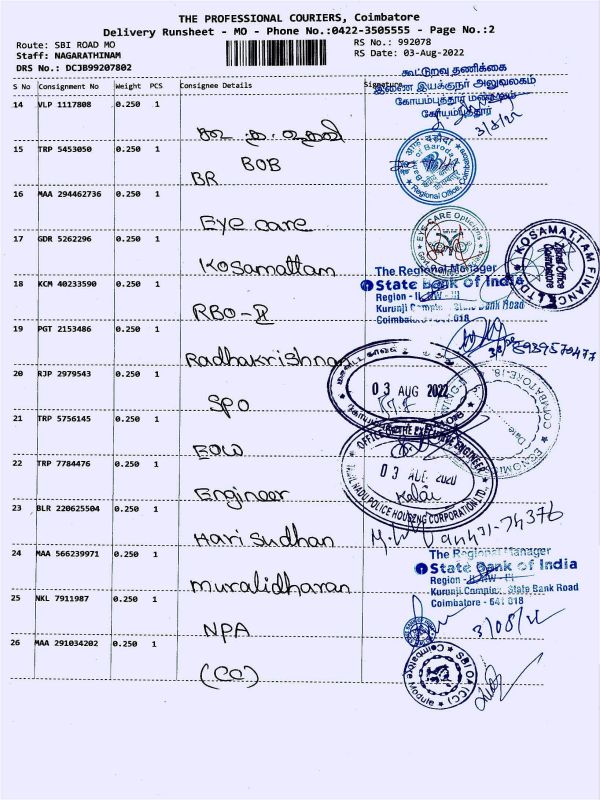 THE PROFESSIONAL COURIERS, Coimbatore
Delivery Runsheet - MO - Phone No.:0422-3505555 - Page No.:2
Route: SBI ROAD MO
RS No.: 992078
Staff: NAGARATHINAM
RS Date: 03-Aug-2022
DRS No.: DCJB99207802
S No Consignment No Weight PCS Consignee Details Signature
கூட்டுறவு தணிக்கை
இணை இயக்குநர் அலுவலகம்
கோயம்புத்தூர் மண்டலம்
கோயம்புத்தூர்
14 VLP 1117808 0.250 1
3/8/22
15 TRP 5453050 0.250 1
BOB
BR
Bank of Baroda
Regional Office, Coimbatore
16 MAA 294462736 0.250 1
Eye care
EYE CARE Opticians
17 GDR 5262296 0.250 1
Kosamattam
KOSAMATTAM FINANCE LTD
Zonal Office
Coimbatore
The Regional Manager
State Bank of India
Region - II
Kurunji Complex State Bank Road
Coimbatore - 641 018
18 KCM 40233590 0.250 1
RBO-II
19 PGT 2153486 0.250 1
Radhakrishnan
3/8
8939570477
20 RJP 2979543 0.250 1
SPO
03 AUG 2022
COIMBATORE-18
Date:
ECONOMIC
21 TRP 5756145 0.250 1
EOW
22 TRP 7784476 0.250 1
Engineer
OFFICE OF THE EXECUTIVE ENGINEER
03 AUG 2020
Kalai
TAMIL NADU POLICE HOUSING CORPORATION LTD.,
23 BLR 220625504 0.250 1
Hari Sudhan
94431-74376
24 MAA 566239971 0.250 1
Muralidharan
The Regional Manager
State Bank of India
Region - II
Kurunji Complex, State Bank Road
Coimbatore - 641 018
25 NKL 7911987 0.250 1
NPA
3/08/22
26 MAA 291034202 0.250 1
(CO)
SBIOA (CC)
Coimbatore Module